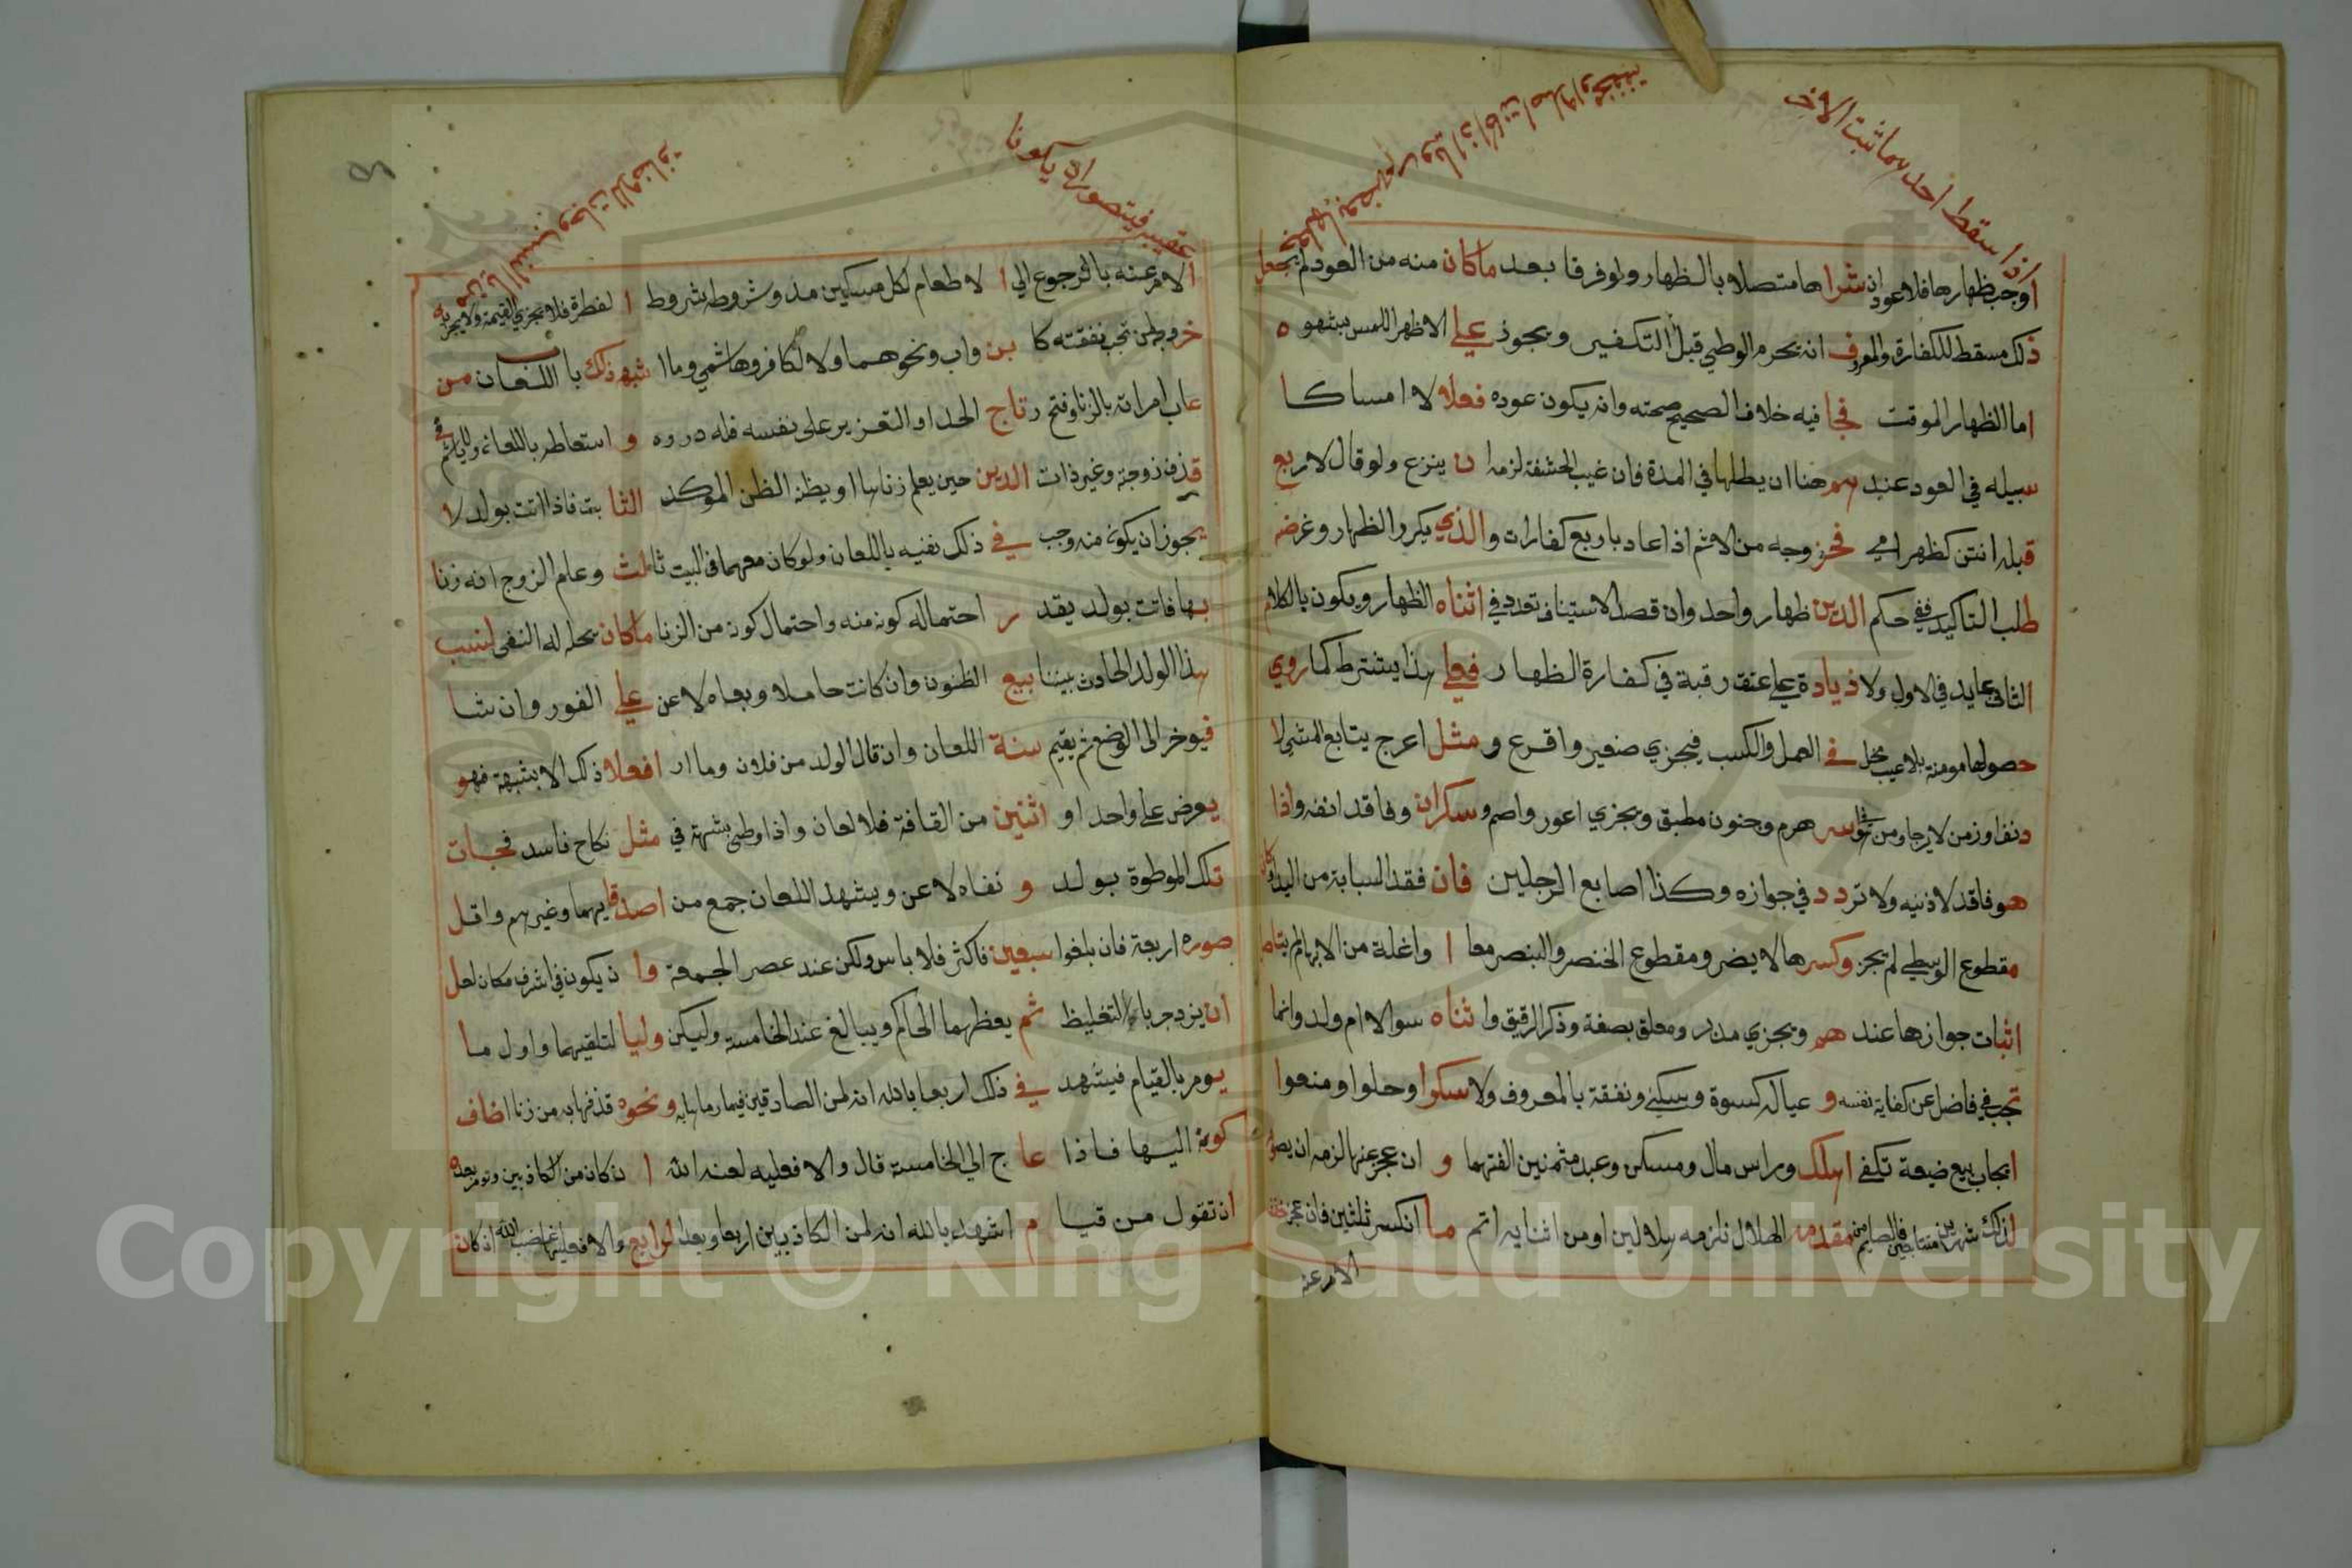 اذا سقط احدهما ثبت الاخر
اوجب ظهارها فلا عود ان شراها متصلا بالظهار ولو فرقا بعد ما كان منه من العود لم يجعل
ذلك مسقط للكفارة والمعروف انه يحرم الوطي قبل التكفير ويجوز علي الاظهر اللمس بشهوه
اما الظهار الموقت فجا فيه خلاف الصحيح صحته وانه يكون عوده فعلا لا امساكا
سبيله في العود عندهم هنا ان يطاها في المدة فان غيب الحشفة لزمه ان ينزع ولو قال لاربع
قبله انتن كظهر امي فخروجه من الاثم اذا عاد باربع كفارات والذي يكرر الظهار وغرضه
طلب التاكيد ففي حكم الدين ظهار واحد وان قصد الاستيناف تعدد في اثناه الظهار ويكون بالكلام
الثاني عايد في الاول ولا زيادة علي عتق رقبة في كفارة الظهار فعلي هذا يشترط كما روي
حصولها مومنة بلا عيب مخل في العمل والكسب فيجزي صغير واقرع ومثل اعرج يتابع المشي لا
دنفا وزمن لا يرجا ومن في اسر هرم وجنون مطبق ويجزي اعور واصم وسكران وفاقد انفه واذا
هو فاقد لاذنيه ولا تردد في جوازه وكذا اصابع الرجلين فان فقد السبابة من اليد او كان
مقطوع الوسطي لم يجز وكسرها لا يضر ومقطوع الخنصر والبنصر معا وانملة من الابهام لم يتاهل
اثبات جوازها عندهم ويجزي مدبر ومعلق بصفة وذكر الرقيق واثناه سوا لا ام ولد وانما
تجب في فاضل عن كفاية نفسه وعياله كسوة وسكني ونفقة بالمعروف ولا سكوا وحلوا ومنعوا
ايجاب بيع ضيعة تكفي اهلك وراس مال ومسكن وعبد مثمنين الفتهما وان عجز عنها لزمه ان يصوم
لذلك شهرين متتابعين فالصايم من مقدمه الهلال نلزمه هلالين او من اثنايه اتم ما انكسر ثلثين فان عجز
الامر عنه
الامر عنه بالرجوع الي الاطعام لكل مسكين مد وشروطه شروط الفطرة فلا تجزي القيمة ولا يجزيه
خروج لمن تجب نفقته كابن واب ونحوهما ولا لكافر وهاشمي وما اشبه ذلك باب اللعان من
عاب امراته بالزنا وفتح رتاج الحد او التعزير على نفسه فله دروه واستعاطر باللعان ولا ياثم في
قذف زوجة وغير ذات الدين حين يعلم زناها او يظنه الظن الموكد الثابت فاذا اتت بولد لا
يجوز ان يكون منه وجب في ذلك نفيه باللعان ولو كان معهما في البيت ثالث وعلم الزوج انه زنا
بها فاتت بولد يقدر احتماله كونه منه واحتمال كونه من الزنا ما كان يحل له النفي لنسب
هذا الولد الحادث بيننا بيع الظنون وان كانت حاملا وبعاه لاعن علي الفور وان شا
فيوخر الى الوضع ثم يقيم سنة اللعان وان قال الولد من فلان وما ار افعلا ذلك الا بشبهة فهو
يعرض علي واحد او اثنين من القافة فلا لعان واذا وطي بشبهة في مثل نكاح فاسد فجات
تلك الموطوة بولد ونفاه لاعن ويشهد اللعان جمع من اصدقايهما وغيرهم واقل
صوره اربعة فان بلغوا سبعين فاكثر فلا باس ولكن عند عصر الجمعة وان يكون في اشرف مكان لعل
ان يزدجر باء التغليظ ثم يعظهما الحاكم ويبالغ عند الخامسة وليكن وليا لتلقيهما واول ما
يومر بالقيام فيشهد في ذلك اربعا بالله انه لمن الصادقين فيما رماها به ونحوه قذفها به من زنا اضاف
كونه اليها فاذا عاج الي الخامسة قال والا فعليه لعنة الله ان كان من الكاذبين وتومر بعده
ان تقول من قيام اشهد بالله انه لمن الكاذبين اربعا وبعد لوابع والا فعليها غضب الله اذ كان